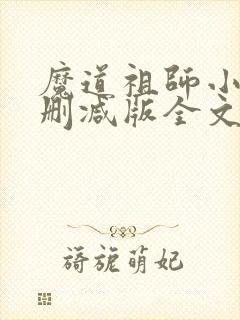 魔道祖师小
删减版全文
旖旎萌妃